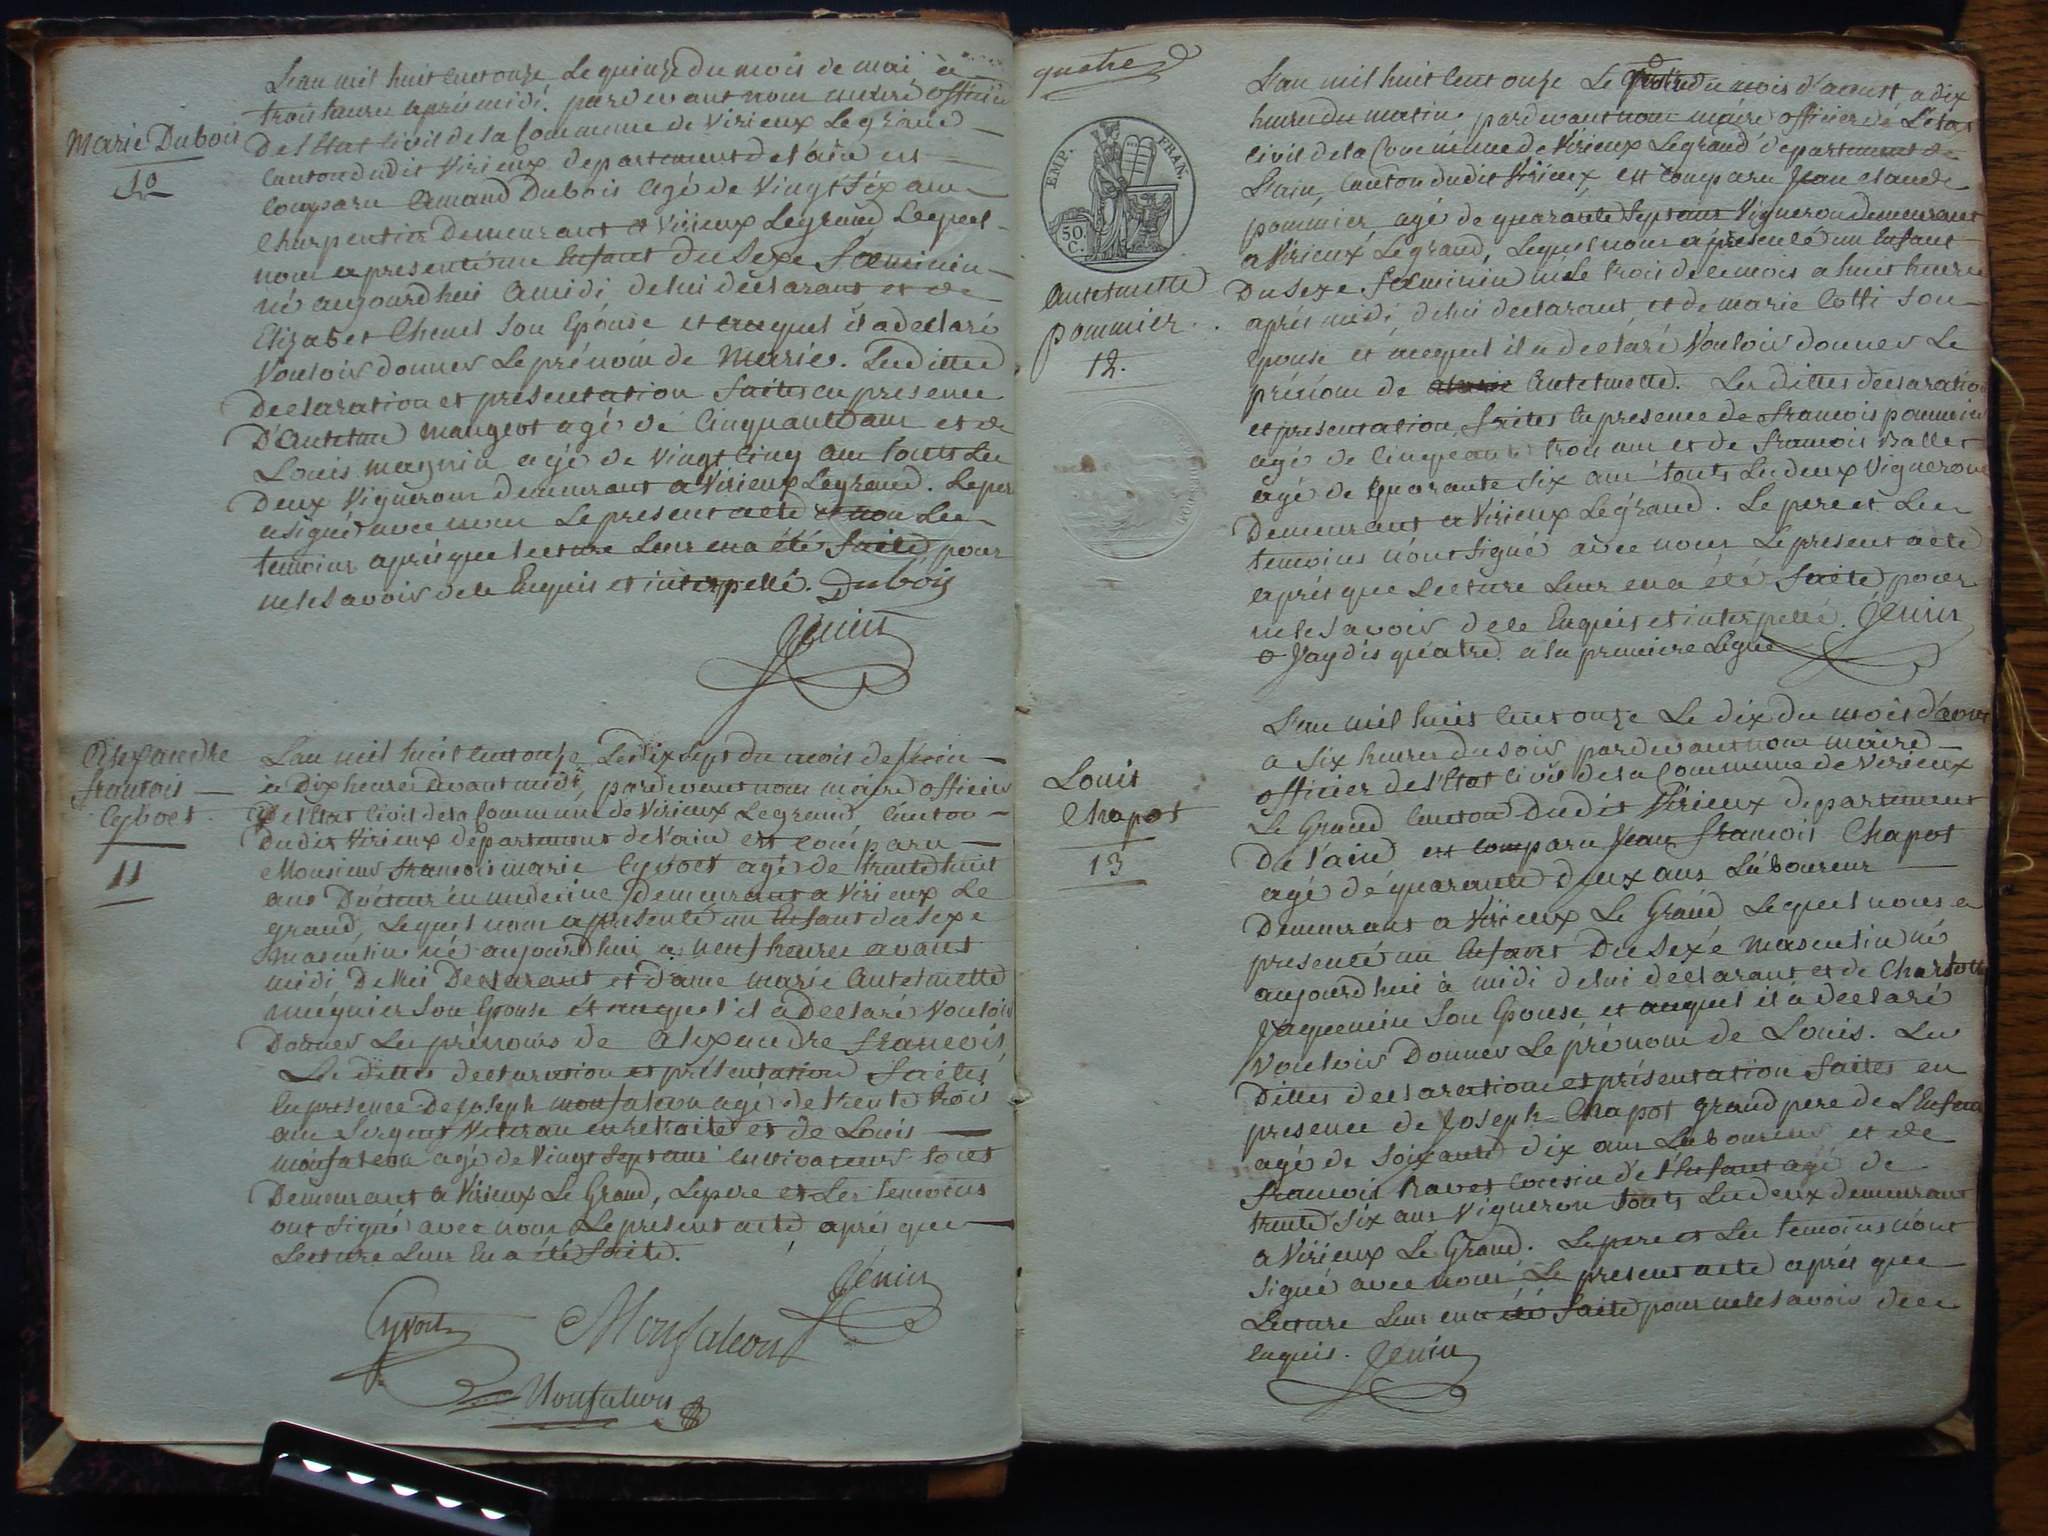 L'an mil huit cent onze Le quinze du mois de mai à
trois heures après midi. pardevant nous maire officier
Marie Dubois
De l'Etat Civil de la Commune de Virieux Le grand
10
Canton dudit Virieux departement de l'ain est
comparu Amand Dubois agé de Vingt Six ans
Charpentier Demeurant a Virieux Legrand Lequel
nous a presenté un Enfant Du Sexe Feminin
né aujourdhui a midi de lui déclarant et de
Elizabet Chenel Son Epouse et auquel il a declaré
Vouloir donner Le prénom de Marie. Les dittes
Declaration et présentation faites en presence
D'Antelme Mangeot agé de Cinquante ans et de
Louis magnin agé de Vingt Cinq ans touts Les
Deux Vignerons demeurant a Virieux Legrand. Le per
a signé avec nous Le present acte et non Les
temoins après que lecture Leur en a été faite, pour
ne le Savoir de ce Enquis et interpellé. Dubois
Genin
Alexandre
francois
Cyvoct
11
L'an mil huit cent onze Le dix sept du mois de Juin
à Dix heures avant midi, pardevant nous maire officier
De l'Etat Civil de la Commune de Virieux Legrand Canton
Dudit Virieux département de l'ain est comparu
Monsieur francois marie Cyvoct agé de trente huit
ans Docteur en medecine Demeurant a Virieux Le
grand, Lequel nous a présenté un Enfant du Sexe
Masculin né aujourd'hui a neuf heures avant
midi De lui Declarant et dame marie Antelmette
muguier Son Epouse et auquel il a Declaré Vouloir
Donner Les prénoms de Alexandre francois,
Les dittes declaration et présentation faites
En presence De Joseph monfalcon agé de trente trois
ans Sergent Veteran en retraite et de Louis
monfalcon agé de Vingt Sept ans cultivateurs touts
Demeurant a Virieux Le Grand, Le pere et Les temoins
ont Signé avec nous Le présent acte après que
Lecture Leur En a été faite.
Genin
Cyvoct Monfalcon
Monfalcon
quatre
EMP. FRAN.
50.
C.
Antelmette
pommier.
12.
L'an mil huit Cent onze Le du mois d'aoust a dix
heures du matin, pardevant nous maire officier de L'etat
civil de la Commune de Virieux Legrand departement de
L'ain, Canton dudit Virieux est comparu Jean claude
pommier, agé de quarante Sept ans Vigneron demeurant
a Virieux Legrand, Lequel nous a présenté un Enfant
Du Sexe féminin né Le trois de ce mois a huit heures
après midi de lui declarant, et de marie Cotti Son
Epouse et auquel il a declaré Vouloir donner Le
prénom de Antelmette. Les dittes declaration
et presentation, faites En presence de francois pommier
agé de Cinquante trois ans et de francois Ballet
agé de Quarante Six ans touts Les deux Vignerons
Demeurant a Virieux Legrand. Le pere et Les
temoins n'ont Signé avec nous Le présent acte
après que Lecture Leur en a été faite pour
ne le Savoir de ce Enquis et interpellé. Genin
o Jay dis quatre a la premiere Ligne
Louis
Chapot
13
L'an mil huit Cent onze Le dix du mois d'aoust
a Six heures du Soir pardevant nous maire
officier de l'Etat Civil de la Commune de Virieux
Le Grand Canton Dudit Virieux departement
De l'ain est comparu Jean francois Chapot
agé de quarante deux ans Laboureur
Demeurant a Virieux Le Grand Lequel nous a
présenté un Enfant Du Sexe Masculin né
aujourd'hui à midi de lui declarant et de Charlotte
Jaquemin Son Epouse et auquel il à declaré
Vouloir Donner Le prénom de Louis. Les
Dittes declaration et présentation faites en
presence de Joseph Chapot grand pere de L'Enfant
agé de Soixante dix ans Laboureur et de
francois Ravet cousin de l'Enfant agé de
trente Six ans Vigneron touts Les deux demeurant
a Virieux Le Grand. Le pere et Les temoins n'ont
Signé avec nous Le présent acte après que
Lecture Leur en a été faite pour ne le Savoir de ce
Enquis. Genin